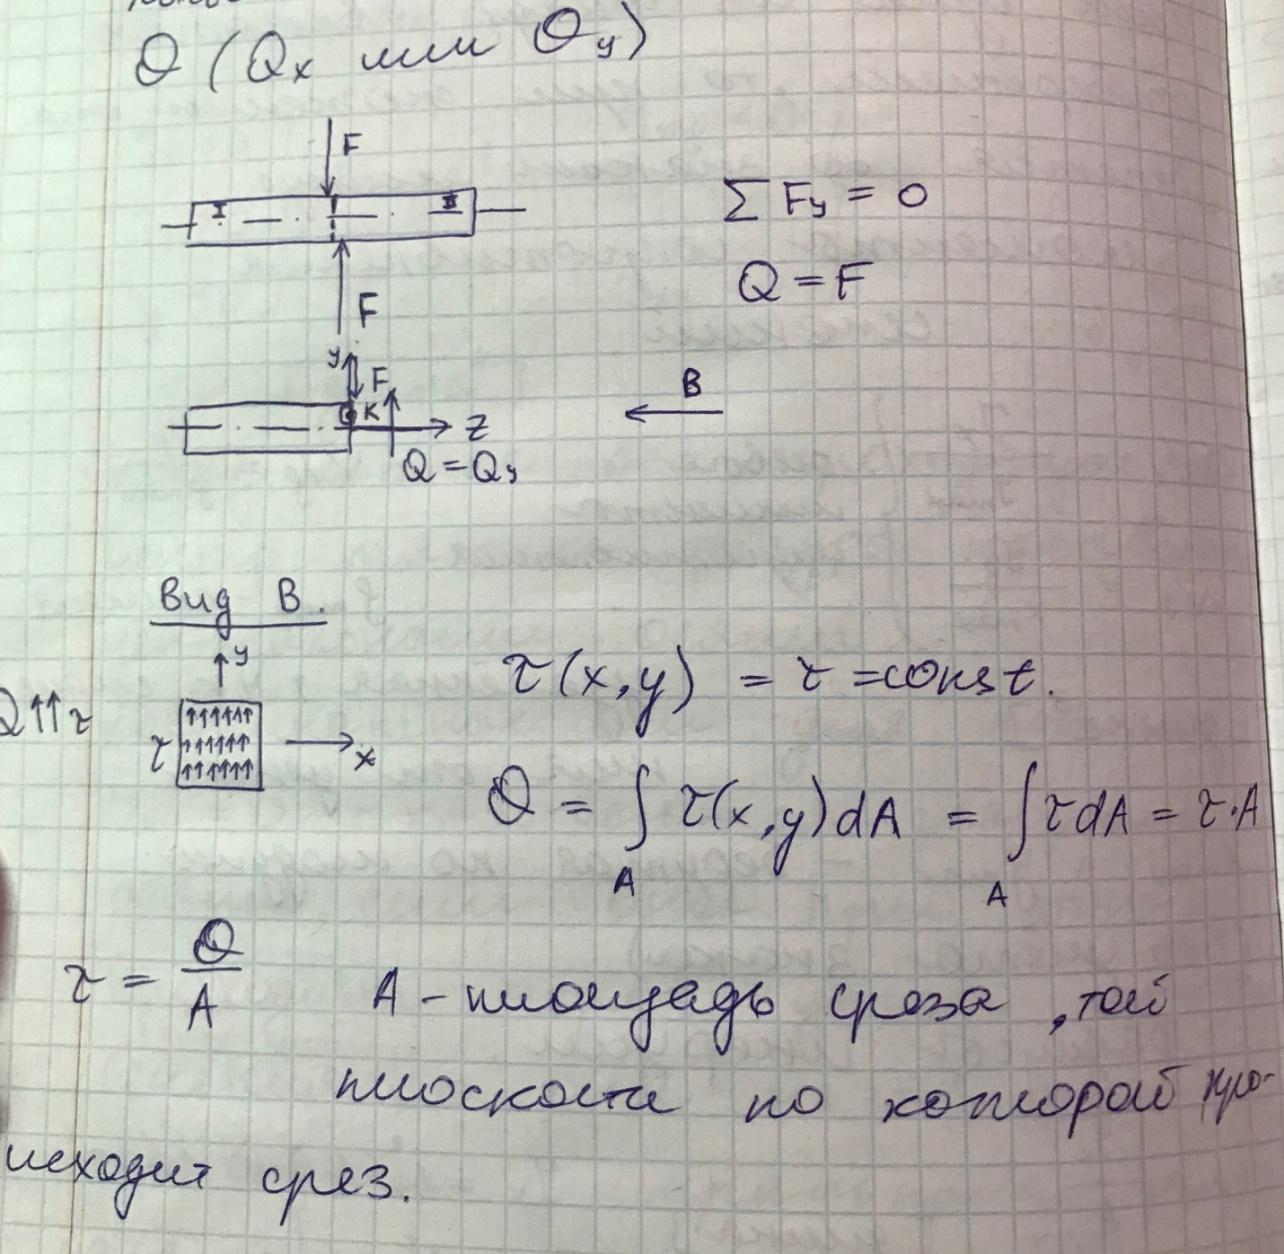 Q (Qx или Qy)
F
I II
Σ Fy = 0
Q = F
F
y F
B
K Z
Q = Qy
Вид В.
y
τ(x,y) = τ = const.
Q↑↑τ
τ x
Q = ∫ τ(x,y)dA = ∫ τdA = τ·A
A A
τ = Q/A A - площадь среза, той
плоскости по которой про-
исходит срез.